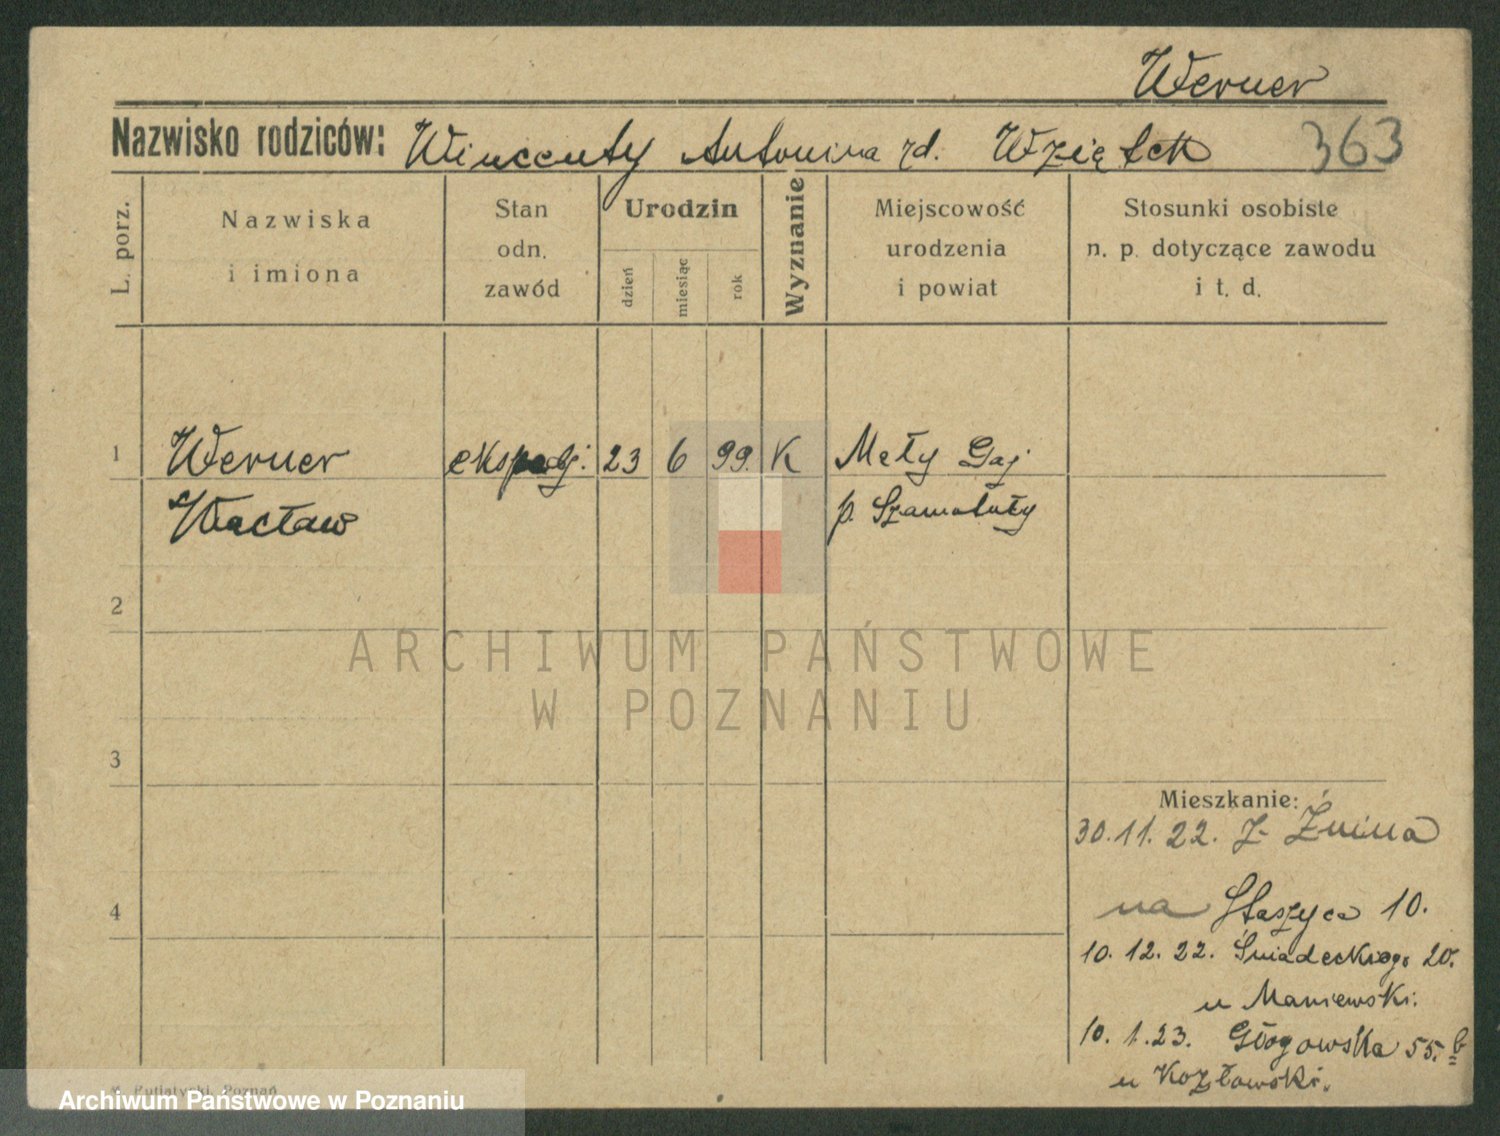 Werner
Nazwisko rodziców: Wincenty Antonina rd. Wziętek 363
L. porz.
Nazwiska
i imiona
Stan
odn.
zawód
Urodzin
dzień
miesiąc
rok
Wyznanie
Miejscowość
urodzenia
i powiat
Stosunki osobiste
n. p. dotyczące zawodu
i t. d.
1 Werner ekspedj. 23 6 99. K Mały Gaj
Wacław p. Szamotuły
2
3
4
ARCHIWUM PAŃSTWOWE
W POZNANIU
Mieszkanie:
30.11.22. z Żnina
na Staszyca 10.
10.12.22. Śniadeckiego 20.
u Maniewski.
10.1.23. Głogowska 55. b
u Kozłowski.
Putiatycki, Poznań
Archiwum Państwowe w Poznaniu